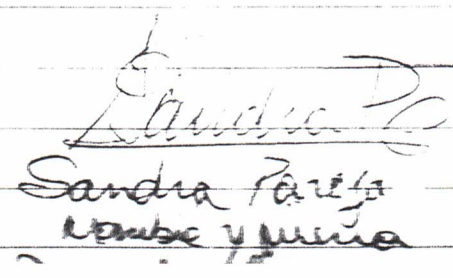 Sandra P
Sandra Pareja
Nombe y firma